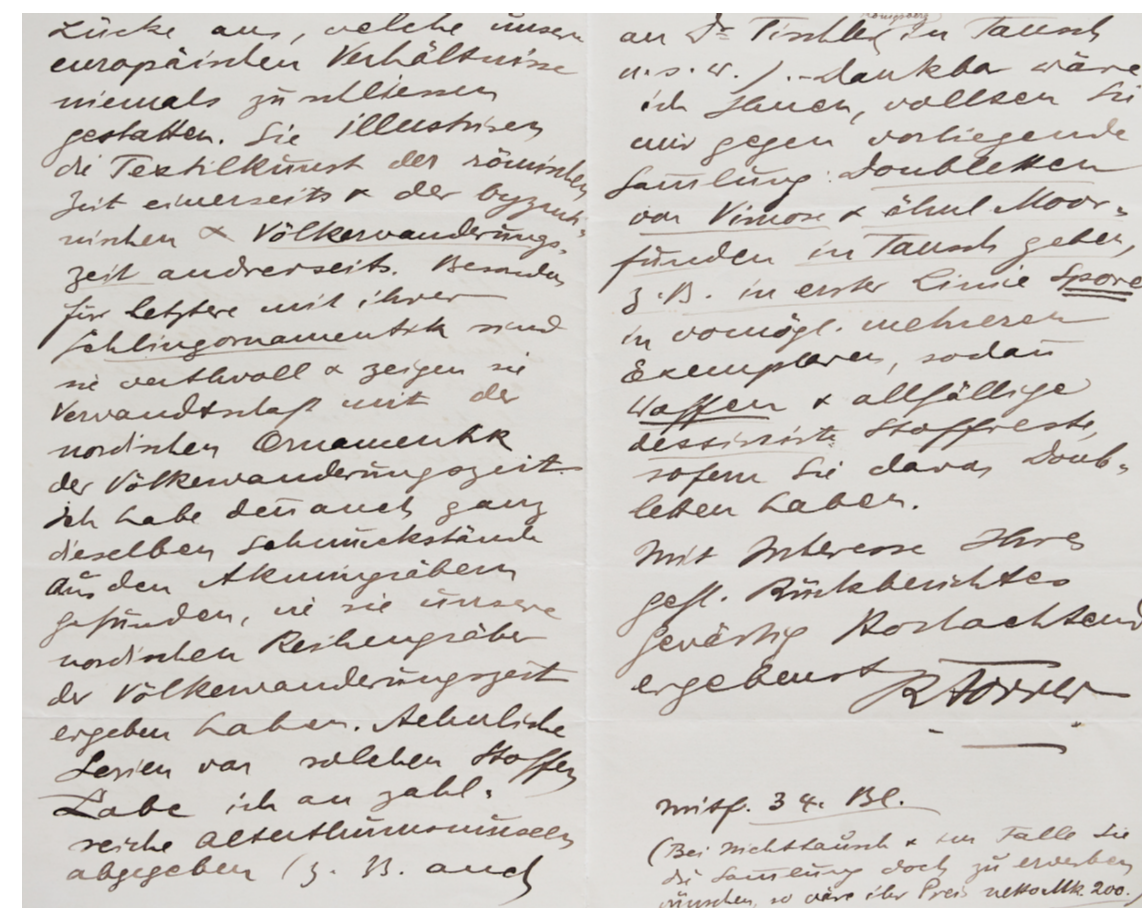 Lücke aus, welche unsern
europäischen Verhältnisse
niemals zu schliessen
gestatten. Sie illustriren
die Textilkunst der römischen
Zeit einerseits & der byzanti-
nischen & Völkerwanderungs-
zeit andrerseits. Besonders
für letztere mit ihrer
Schlingornamentik sind
sie werthvoll & zeigen sie
Verwandtschaft mit der
nordischen Ornamentik
der Völkerwanderungszeit.
Ich habe denn auch ganz
dieselben Schmuckstände
aus den Akmingräbern
gefunden, wie sie unsere
nordischen Reihengräber
der Völkerwanderungszeit
ergeben haben. Aehnliche
Serien von solchen Stoffen
habe ich an zahl-
reiche Alterthumsmuseen
abgegeben (z. B. auch
Königsberg
an Dr. Tischler in Tausch
u.s.w.). - Dankbar wäre
ich Ihnen, wollten Sie
mir gegen vorliegende
Sam̅lung Doubletten
von Vimose & ähnl Moor-
funden in Tausch geben,
z. B. in erster Linie Spore
in womögl. mehreren
Exemplaren, sodan̅
Waffen & allfällige
dessinirte Stoffreste,
sofern Sie davon Doub-
letten haben.
Mit Interesse Ihres
gefl. Rückberichtes
gewärtig Hochachtend
ergebenst R Forrer
mitf. 34. Bl.
(Bei Nichttausch & im Falle Sie
die Sam̅lung doch zu erwerben
wünschen, so wäre ihr Preis netto Mk. 200.)